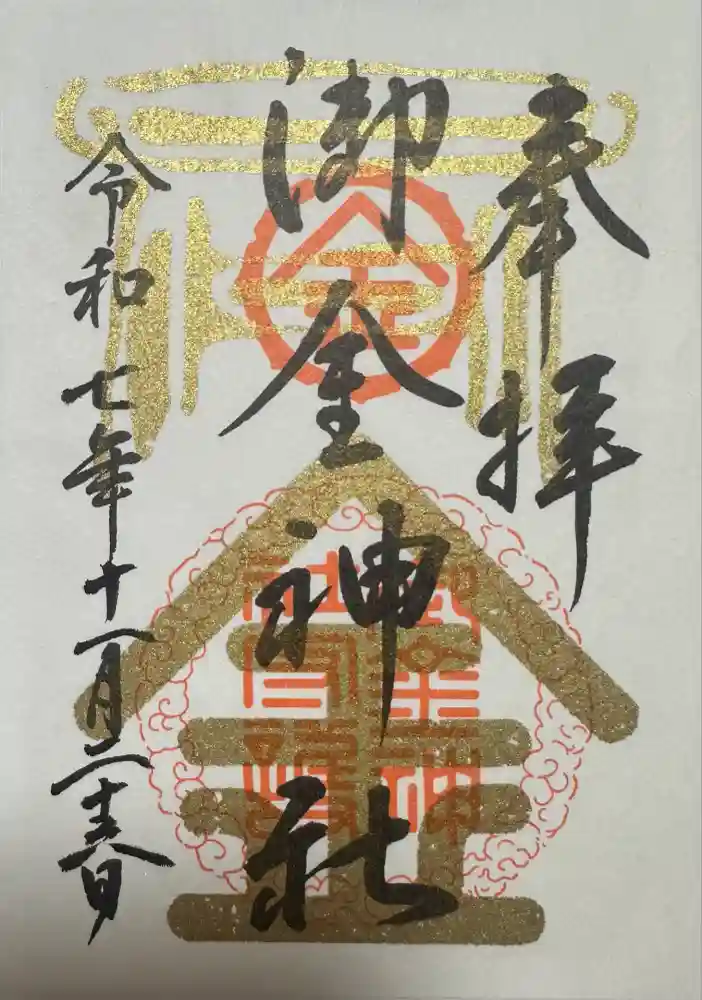 奉拝
御金神社
令和七年十一月二十日
金
金